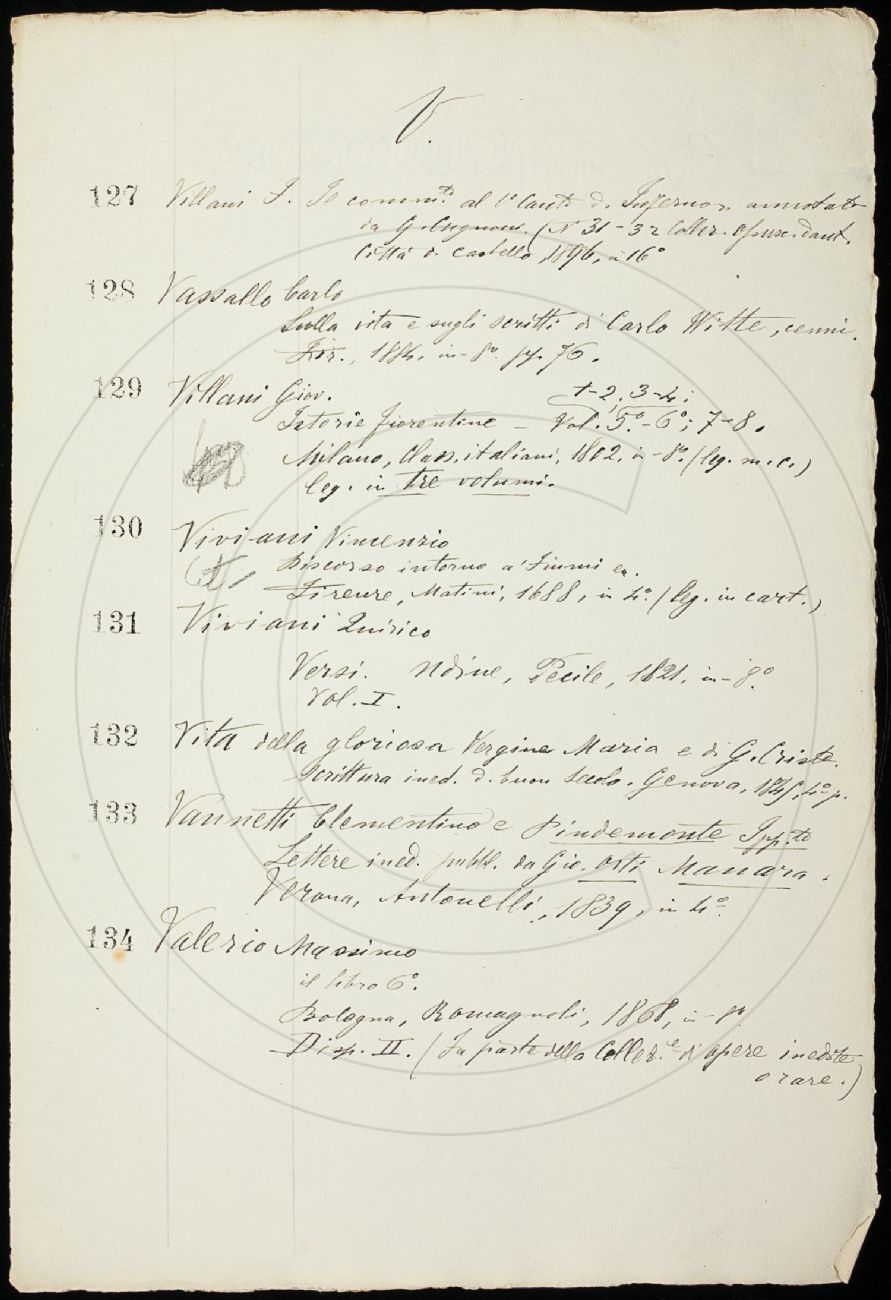 V.
127 Villani F. Il comm.to al 1º Canto d. Inferno, annotato
da G. Cugnoni. (N 31-32 Collez. opusc. dant.
Città di Castello, 1896, in 16º
128 Vassallo Carlo
Sulla vita e sugli scritti di Carlo Witte, cenni.
Fir., 1884, in-8º. pp. 76.
129 Villani Giov. 1-2, 3-4;
Istorie fiorentine - Vol. 5º-6º; 7-8.
Milano, Class. italiani, 1802, in-8º. (leg. m. c.)
leg. in tre volumi.
130 Viviani Vincenzio
Discorso intorno a' Fiumi ec.
Firenze, Matini, 1688, in 4º. (leg. in cart.)
131 Viviani Quirico
Versi. Udine, Pecile, 1821, in-8º.
Vol. I.
132 Vita della gloriosa Vergine Maria e di G. Cristo.
Scrittura ined. d. buon Secolo. Genova, 4º p.
133 Vannetti Clementino e Pindemonte Ipp.to
Lettere ined. pubbl. da Gio. Orti Manara.
Verona, Antonelli, 1839, in 4º.
134 Valerio Massimo
il libro 6º.
Bologna, Romagnoli, 1868, in-8º
Disp. II. (Fa parte della Collez.e di opere inedite
o rare.)